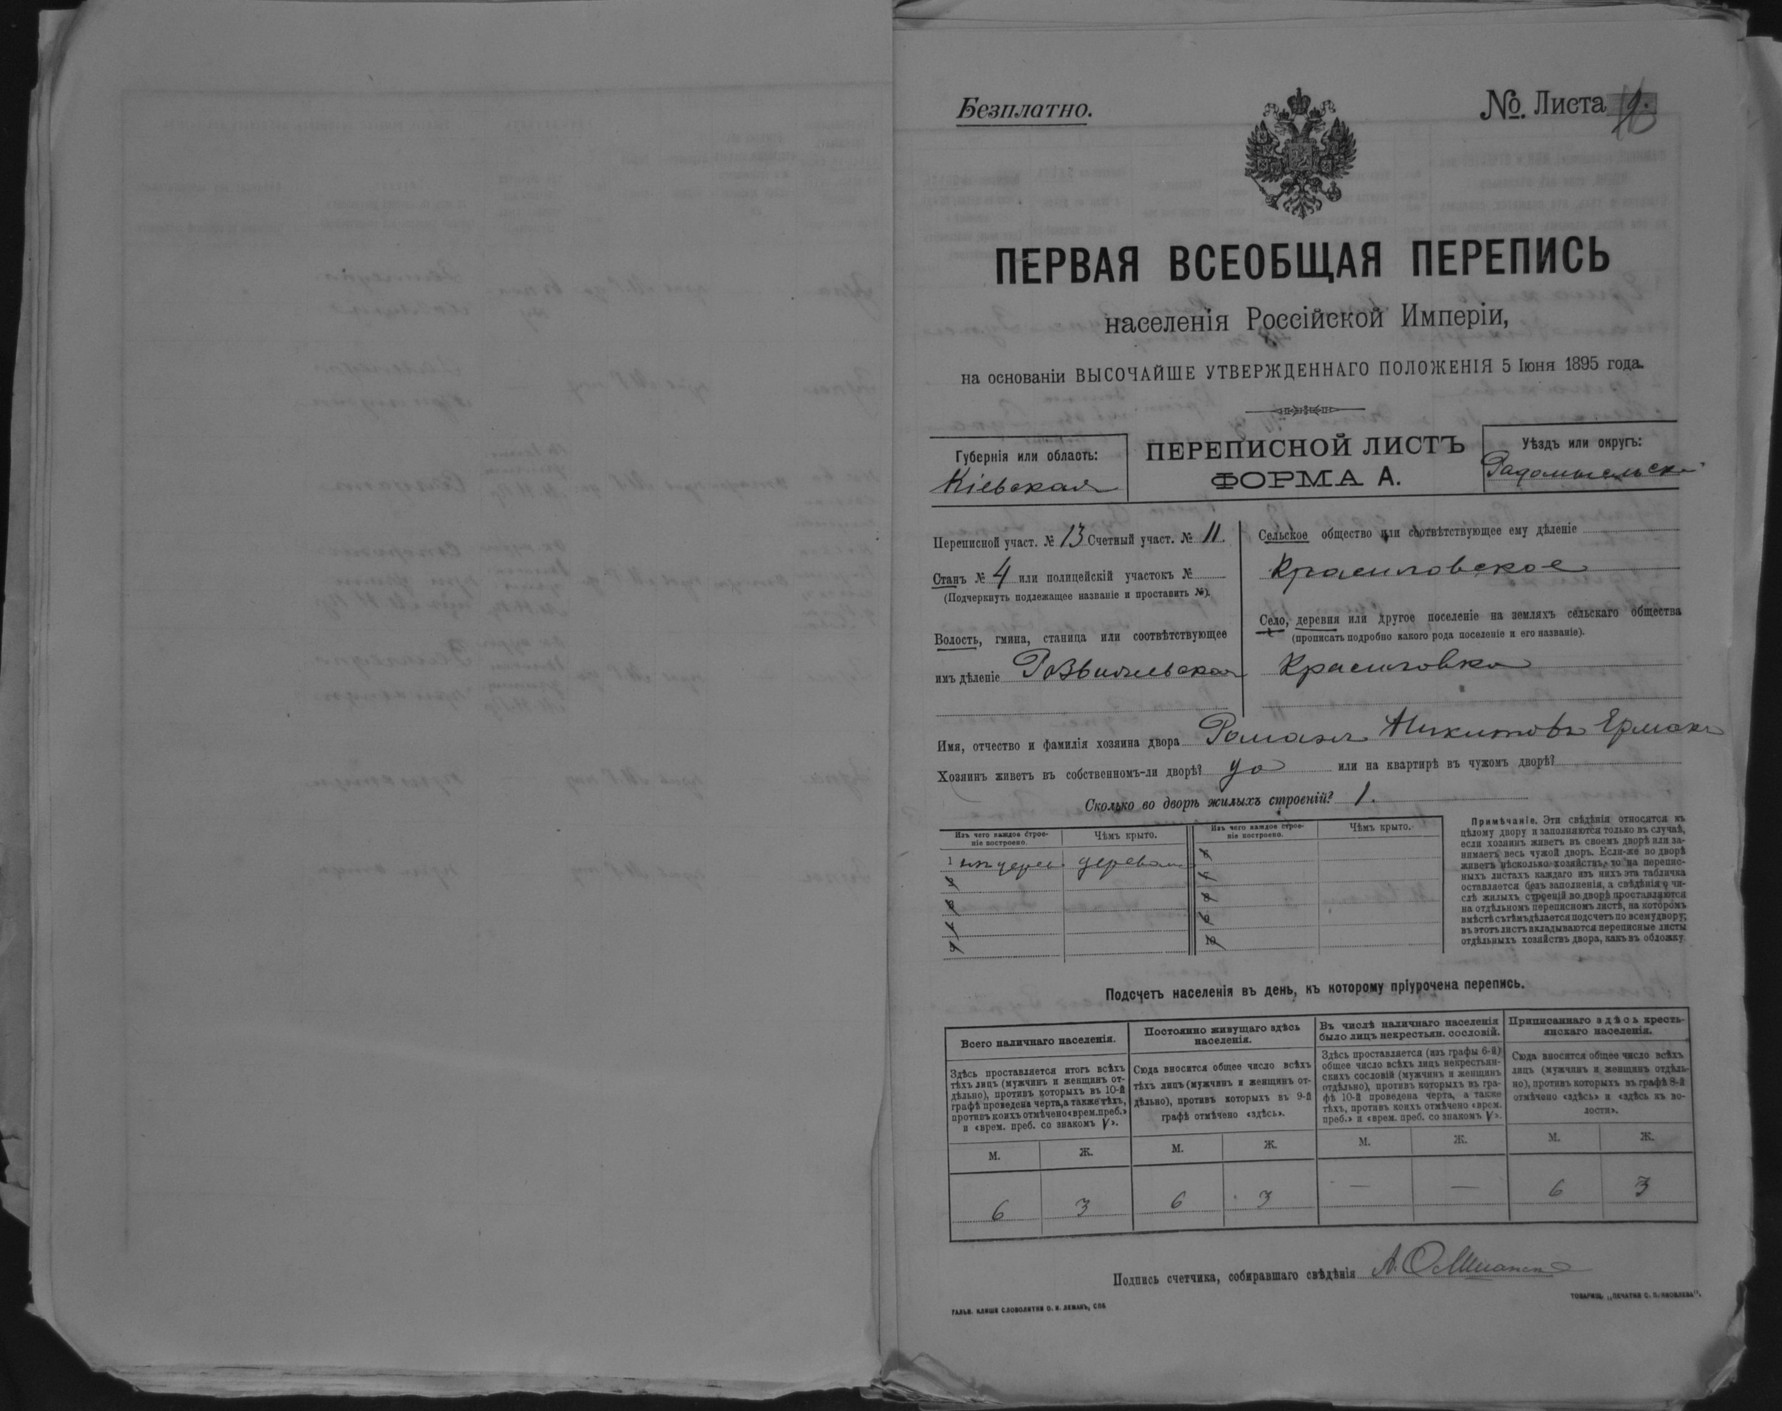 Безплатно.
№. Листа 9.
ПЕРВАЯ ВСЕОБЩАЯ ПЕРЕПИСЬ
населенія Россійской Имперіи,
на основаніи ВЫСОЧАЙШЕ УТВЕРЖДЕННАГО ПОЛОЖЕНІЯ 5 Іюня 1895 года.
Губернія или область:
Кіевская
ПЕРЕПИСНОЙ ЛИСТЪ
ФОРМА А.
Уѣздъ или округъ:
Радомысльскій
Переписной участ. № 13 Счетный участ. № 11.
Станъ № 4 или полицейскій участокъ №
(Подчеркнуть подлежащее названіе и проставить №).
Волость, гмина, станица или соотвѣтствующее
имъ дѣленіе
Сельское общество или соотвѣтствующее ему дѣленіе
Красиловское
Село, деревня или другое поселеніе на земляхъ сельскаго общества
(прописать подробно какого рода поселеніе и его названіе).
Красиловка
Имя, отчество и фамилія хозяина двора Романъ Никитовъ Ермакъ
Хозяинъ живетъ въ собственномъ-ли дворѣ? да или на квартирѣ въ чужомъ дворѣ?
Сколько во дворѣ жилыхъ строеній? 1.
Изъ чего каждое строе-
ніе построено.
Чѣмъ крыто.
Изъ чего каждое строе-
ніе построено.
Чѣмъ крыто.
1
2
3
4
10
Примѣчаніе. Эти свѣдѣнія относятся къ
цѣлому двору и заполняются только въ случаѣ,
если хозяинъ живетъ въ своемъ дворѣ или за-
нимаетъ весь чужой дворъ. Если-же во дворѣ
живетъ нѣсколько хозяйствъ, то на перепис-
ныхъ листахъ каждаго изъ нихъ эта табличка
оставляется безъ заполненія, а свѣдѣнія о чи-
слѣ жилыхъ строеній во дворѣ проставляются
на отдѣльномъ переписномъ листѣ, на которомъ
вмѣстѣ съ тѣмъ дѣлается подсчетъ по всему двору;
въ этотъ листъ вкладываются переписные листы
отдѣльныхъ хозяйствъ двора, какъ въ обложку
Подсчетъ населенія въ день, къ которому пріурочена перепись.
Всего наличнаго населенія.
Здѣсь проставляется итогъ всѣхъ
тѣхъ лицъ (мужчинъ и женщинъ от-
дѣльно), противъ которыхъ въ 10-й
графѣ проведена черта, а также тѣхъ,
противъ коихъ отмѣчено «врем. преб.»
и «врем. преб. со знакомъ V».
Постоянно живущаго здѣсь
населенія.
Сюда вносится общее число всѣхъ
тѣхъ лицъ (мужчинъ и женщинъ от-
дѣльно), противъ которыхъ въ 9-й
графѣ отмѣчено «здѣсь».
Въ числѣ наличнаго населенія
было лицъ некрестьян. сословій.
Здѣсь проставляется (изъ графы 6-й)
общее число всѣхъ лицъ некрестьян-
скихъ сословій (мужчинъ и женщинъ
отдѣльно), противъ которыхъ въ гра-
фѣ 10-й проведена черта, а также
тѣхъ, противъ коихъ отмѣчено «врем.
преб.» и «врем. преб. со знакомъ V».
Приписаннаго здѣсь кресть-
янскаго населенія.
Сюда вносится общее число всѣхъ
лицъ (мужчинъ и женщинъ отдѣль-
но), противъ которыхъ въ графѣ 8-й
отмѣчено «здѣсь» и «здѣсь въ во-
лости».
М. Ж. М. Ж. М. Ж. М. Ж.
6 3 6 3 — — 6 3
Подпись счетчика, собиравшаго свѣдѣнія
ГАЛЬВ. КЛИШЕ СЛОВОЛИТНИ О. И. ЛЕМАНЪ, СПБ
ТОВАРИЩ. „ПЕЧАТНЯ С. П. ЯКОВЛЕВА".